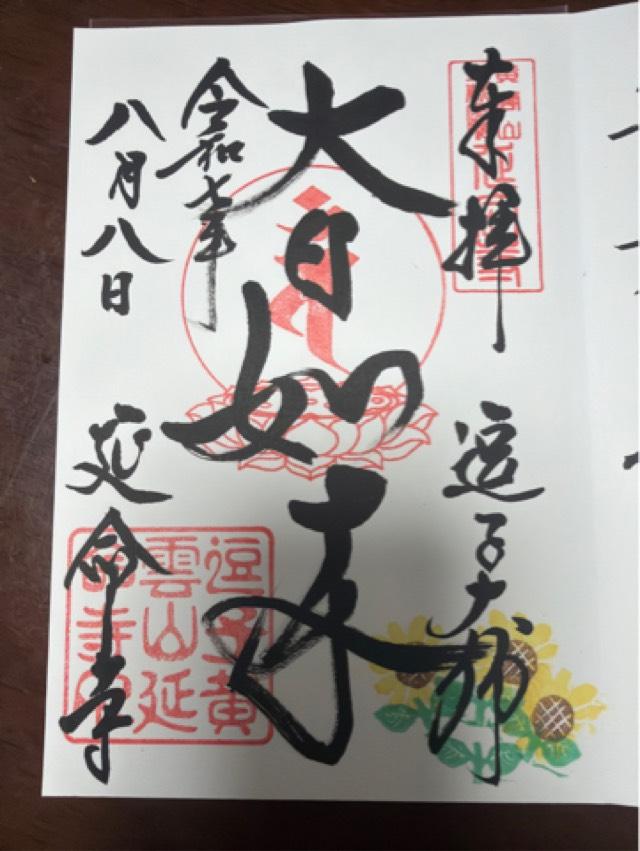 奉拝
逗子大師
大日如来
令和七年
八月八日
延命寺
逗子黄
雲山延
命寺印